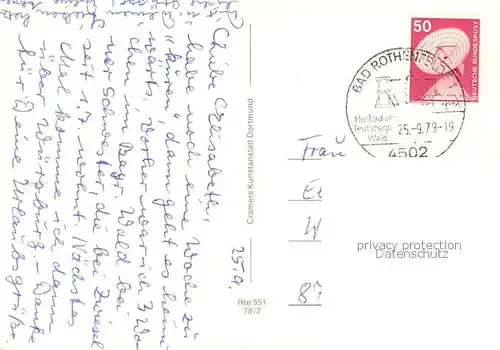 25.9.
Liebe Elisabeth,
habe noch eine Woche zu
"küren", dann geht es heim-
wärts. Vorher war ich 3 Wo-
chen im Bayr. Wald bei
ner Schwester, die bei Zwiesel
seit 1.7. wohnt. Nächstes
Mal komme ich dann
über Würzburg. - Danke
für Deine Urlaubsgrüße.
Cramers Kunstanstalt Dortmund
Rte 551
78/2
50
DEUTSCHE BUNDESPOST
BAD ROTHENFELDE
Heilbad am
Teutoburger
Wald
25.-9.79-19
4502
Frau
El
W
87
privacy protection
Datenschutz